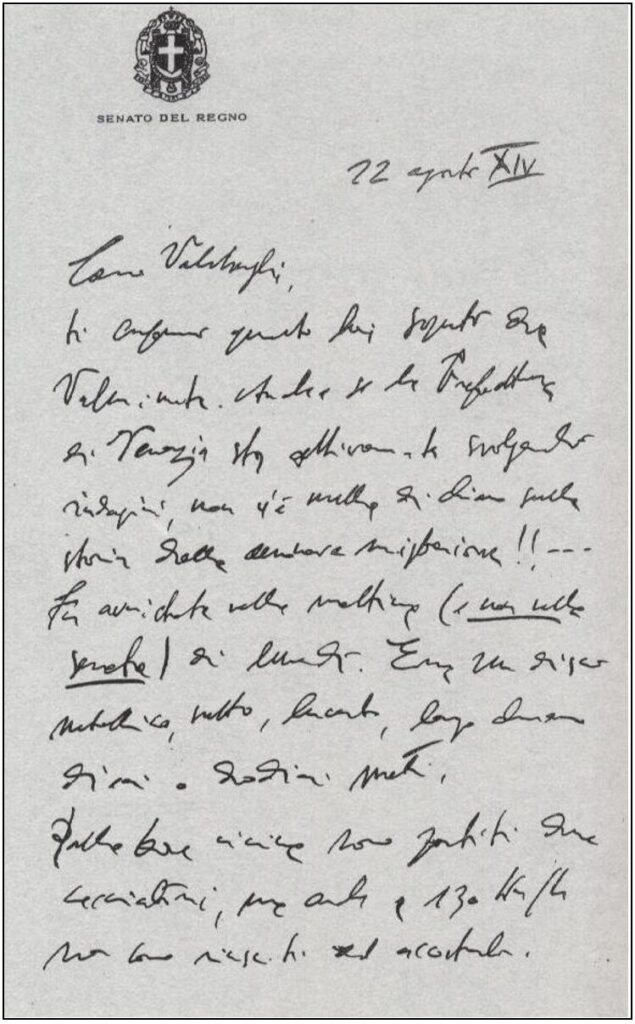 SENATO DEL REGNO
22 agosto XIV
Caro
ti confermo quanto hai saputo da
Valminuta. Anche se la Prefettura
di Venezia sta attivam.te svolgendo
indagini, non c'è nulla di chiaro sulla
storia della aeronave misteriosa!!---
Fu avvistata nella mattina (e non nella
serata) di lunedì. Era un disco
metallico, netto, lucente, largo
dieci o dodici metri.
Dalla base vicina sono partiti due
cacciatori, ma anche a 130 Km/h
non sono riusciti ad accostarla.